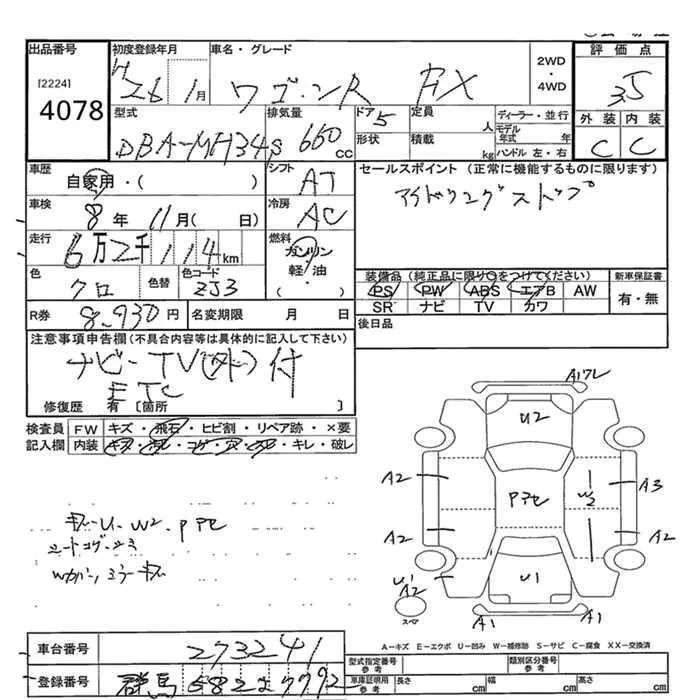 出品番号 初度登録年月 車名・グレード 2WD・4WD 評価点
[2224]
4078
H26 1月 ワゴンR FX 3.5
型式 排気量 ドア 定員 ディーラー・並行 外装 内装
DBA-MH34S 660cc 5 人 モデル年式 年 C C
形状 積載 kg ハンドル 左・右
車歴 シフト セールスポイント (正常に機能するものに限ります)
自家用・( ) AT アイドリングストップ
車検 冷房
8年 11月( 日) AC
走行 燃料
6万2千114km ガソリン・軽・油 ( )
色 色替 色コード 装備品(純正品に限り○をつけてください) 新車保証書
クロ ZJ3 PS PW ABS エアB AW 有・無
SR ナビ TV カワ
R券 8,930円 名変期限 月 日 後日品
注意事項申告欄(不具合内容等は具体的に記入して下さい)
ナビ-TV(外)付
ETC
修復歴 有 [箇所 ]
検査員 FW キズ・飛石・ヒビ割・リペア跡・×要
記入欄 内装 キズ・ヨレ・コゲ・穴・スレ・キレ・破レ
A17L
U2
A2 Pアセ W2 A3
A2 A2
U1
A2 U1
スペア A1 A1
キズ-U-W2.Pアセ
シートコゲ・シミ
Wカバー,ミラーキズ
A-キズ E-エクボ U-凹み W-補修跡 S-サビ C-腐食 XX-交換済
車台番号 273241 型式指定番号 参考 類別区分番号 参考
登録番号 群馬 582 7792 車庫証明用 参考 長さ cm 幅 cm 高さ cm